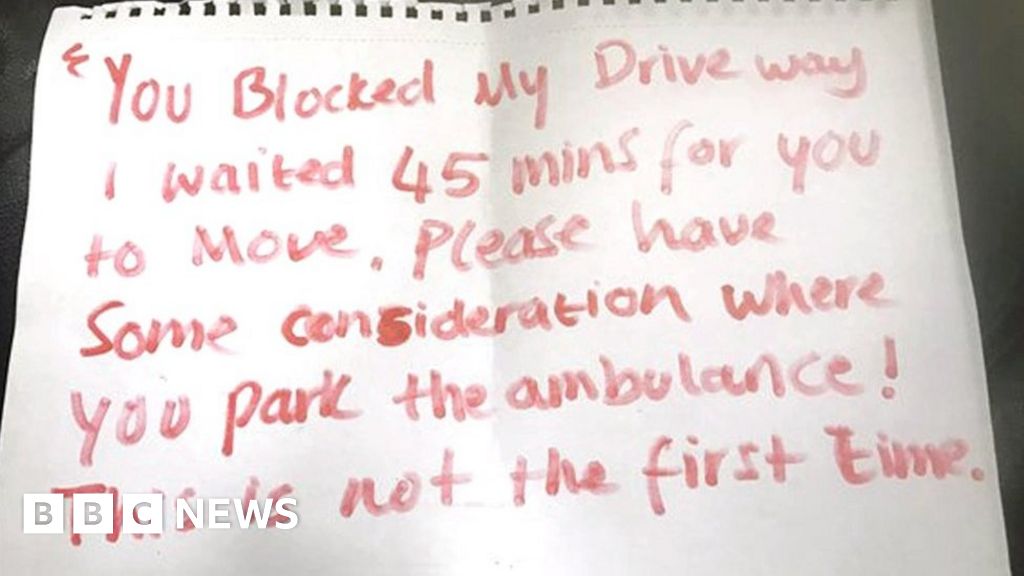 You Blocked My Driveway
I waited 45 mins for you
to Move. Please have
Some consideration where
you park the ambulance!
This is not the first time.
BBC NEWS